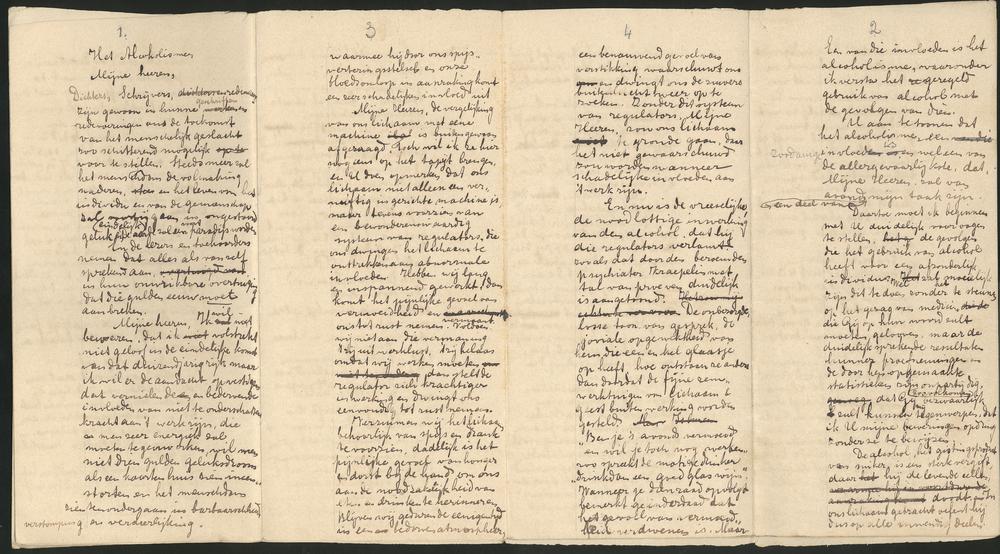 1.
Het Alcoholisme,
Mijne heeren,
Dichters, Schrijvers, redenaars
zijn gewoon in hunne geschriften en
redevoeringen ons de toekomst
van het menschelijk geslacht
zoo schitterend mogelijk
voor te stellen. Steeds meer zal
het menschdom de volmaking
naderen, en het leven van het
individu en van de gemeenschap
zal eindelijk een ongestoord
geluk, een paradijs worden
En de lezers en toehoorders
nemen dat alles als van zelf
sprekend aan,
in hun onwrikbare overtuiging
dat die gulden eeuw moet
aanbreken.
Mijne heeren, Ik wil niet
beweren, dat ik volstrekt
niet geloof in de eindelijke komst
van dat duizendjarig rijk, maar
ik wil er de aandacht op vestigen
dat vernielende en bedervende
invloeden van niet te onderschatten
kracht aan 't werk zijn, die
men zeer energiek zal
moeten tegenwerken, wil men
niet dien gulden geluksdroom
als een kaartenhuis zien ineen-
storten en het menschdom
zien ondergaan in barbaarschheid
verstomping en verdierlijking.
2
Een van die invloeden is het
alcoholisme, waaronder
ik versta het geregeld
gebruik van alcohol met
de gevolgen van dien.
U aan te toonen dat
het alcoholisme een zoodanige
invloed is en wel een van
de allergevaarlijkste, dat,
Mijne Heeren, zal van
avond mijn taak zijn.
een deel van
Daartoe moet ik beginnen
met U duidelijk voor oogen
te stellen, de gevolgen
die het gebruik van alcohol
heeft voor een afzonderlijk
individu. Het zal moeielijk
zijn dit te doen, zonder te steunen
op het gezag van medici,
die Gij op hun woord zult
moeten gelooven, maar de
duidelijk sprekende resultaten
hunner proefnemingen en
de door hen opgemaakte
statistieken zijn onpartijdig
genoeg, dat Gij bezwaarlijk
zult kunnen tegenwerpen, dat
ik U mijne beweringen opdring
zonder ze te bewijzen.
De alcohol, het gistingsproduct
van suiker is een sterk vergif,
daar het bij de levende cellen
doodt, en in
ons lichaam gebracht oefent hij
dus op alle inwendige deelen
3
waarmee hij door ons spijs-
verteringsstelsel en onze
bloedsomloop in aanraking komt
een zeer schadelijken invloed uit
Mijne Heeren, de vergelijking
van ons lichaam met eene
machine is buitengewoon
afgezaagd. Toch wil ik ze hier
nog eens op het tapijt brengen,
en U doen opmerken dat ons
lichaam niet alleen een ver-
nuftig ingerichte machine is,
maar tevens voorzien van
een bewonderenswaardig
systeem van regulators, die
ons dwingen het lichaam te
onttrekken aan abnormale
invloeden. Hebben wij lang
en inspannend gewerkt, dan
komt het pijnlijke gevoel van
vermoeidheid en vermaant
ons tot rust nemen. Voldoen
wij niet aan die vermaning
hetzij uit werklust, hetzij helaas
omdat wij werken moeten
dan stelt de
regulator zich krachtiger
in werking en dwingt ons
eenvoudig tot rust nemen.
Verzuimen wij het lichaam
behoorlijk van spijs en drank
te voorzien, dadelijk is het
pijnlijke gevoel van honger
en dorst bij de hand om ons
aan de noodzakelijkheid van
eten en drinken te herinneren.
Blijven wij gedurende eenigen tijd
in een bedorven atmospheer,
4
een benauwend gevoel van
verstikking waarschuwt ons
en dwingt ons de zuivere
buitenlucht weer op te
zoeken. Zonder dit systeem
van regulators, Mijne
Heeren, zou ons lichaam
te gronde gaan, daar
het niet gewaarschuwd
zou worden wanneer
schadelijke invloeden aan
't werk zijn.
En nu is de vreeselijke,
de noodlottige inwerking
van den alcohol, dat hij
die regulators verlamt
zooals dat door den beroemden
psychiater Kraepelin met
tal van proeven duidelijk
is aangetoond.
De onbezorgde
losse toon van gesprek, de
joviale opgewektheid van
hem die een en het glaasje
op heeft, hoe ontstaan ze anders
dan doordat de fijne zenu-
werktuigen van lichaam en
geest buiten werking worden
gesteld.
"Ben je 's avonds vermoeid
en wil je toch nog werken"
zoo spreekt de matige drinker
"drink dan een goed glas wijn."
Wanneer je dien raad opvolgt
bemerkt ge inderdaad dat
het gevoel van vermoeid-
heid verdwenen is. Maar